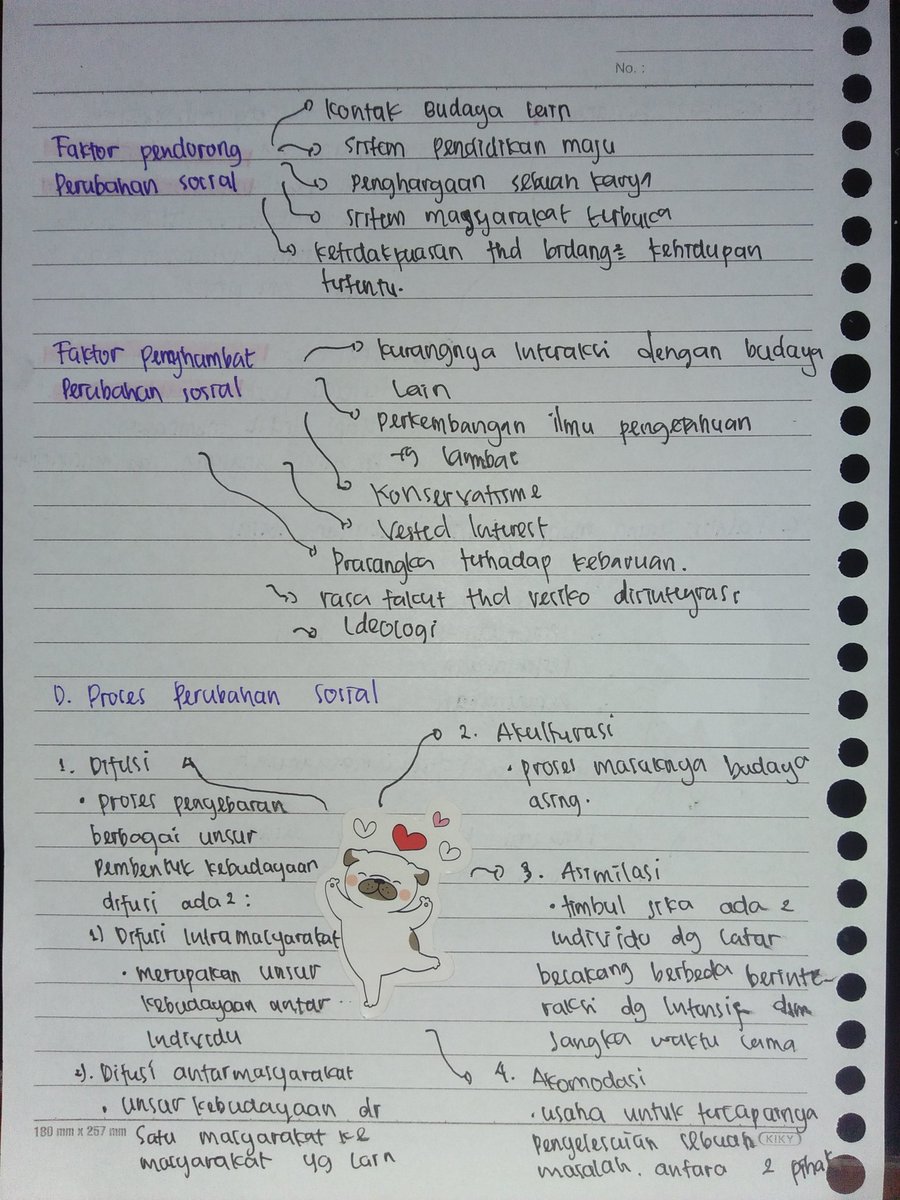 No. :
Faktor pendorong
Perubahan social
Kontak Budaya lain
sistem pendidikan maju
penghargaan sebuah karya
sistem masyarakat terbuka
ketidakpuasan thd bidang² kehidupan
tertentu.
Faktor penghambat
Perubahan sosial
kurangnya interaksi dengan budaya
lain
perkembangan ilmu pengetahuan
yg lambat
Konservatisme
Vested Interest
Prasangka terhadap kebaruan.
rasa takut thd resiko disintegrasi
Ideologi
D. Proses Perubahan sosial
1. Difusi
• proses pengebaran
berbagai unsur
pembentuk kebudayaan
difusi ada 2 :
1) Difusi Intramasyarakat
• merupakan unsur
kebudayaan antar
Individu
2). Difusi antarmasyarakat
• unsur kebudayaan dr
satu masyarakat ke
masyarakat yg lain
2. Akulturasi
• proses masuknya budaya
asing.
3. Asimilasi
• timbul jika ada 2
individu dg latar
belakang berbeda berinte-
raksi dg intensif dlm
jangka waktu lama
4. Akomodasi
• usaha untuk tercapainya
penyelesaian sebuah
masalah. antara 2 pihak
180 mm x 257 mm
KIKY